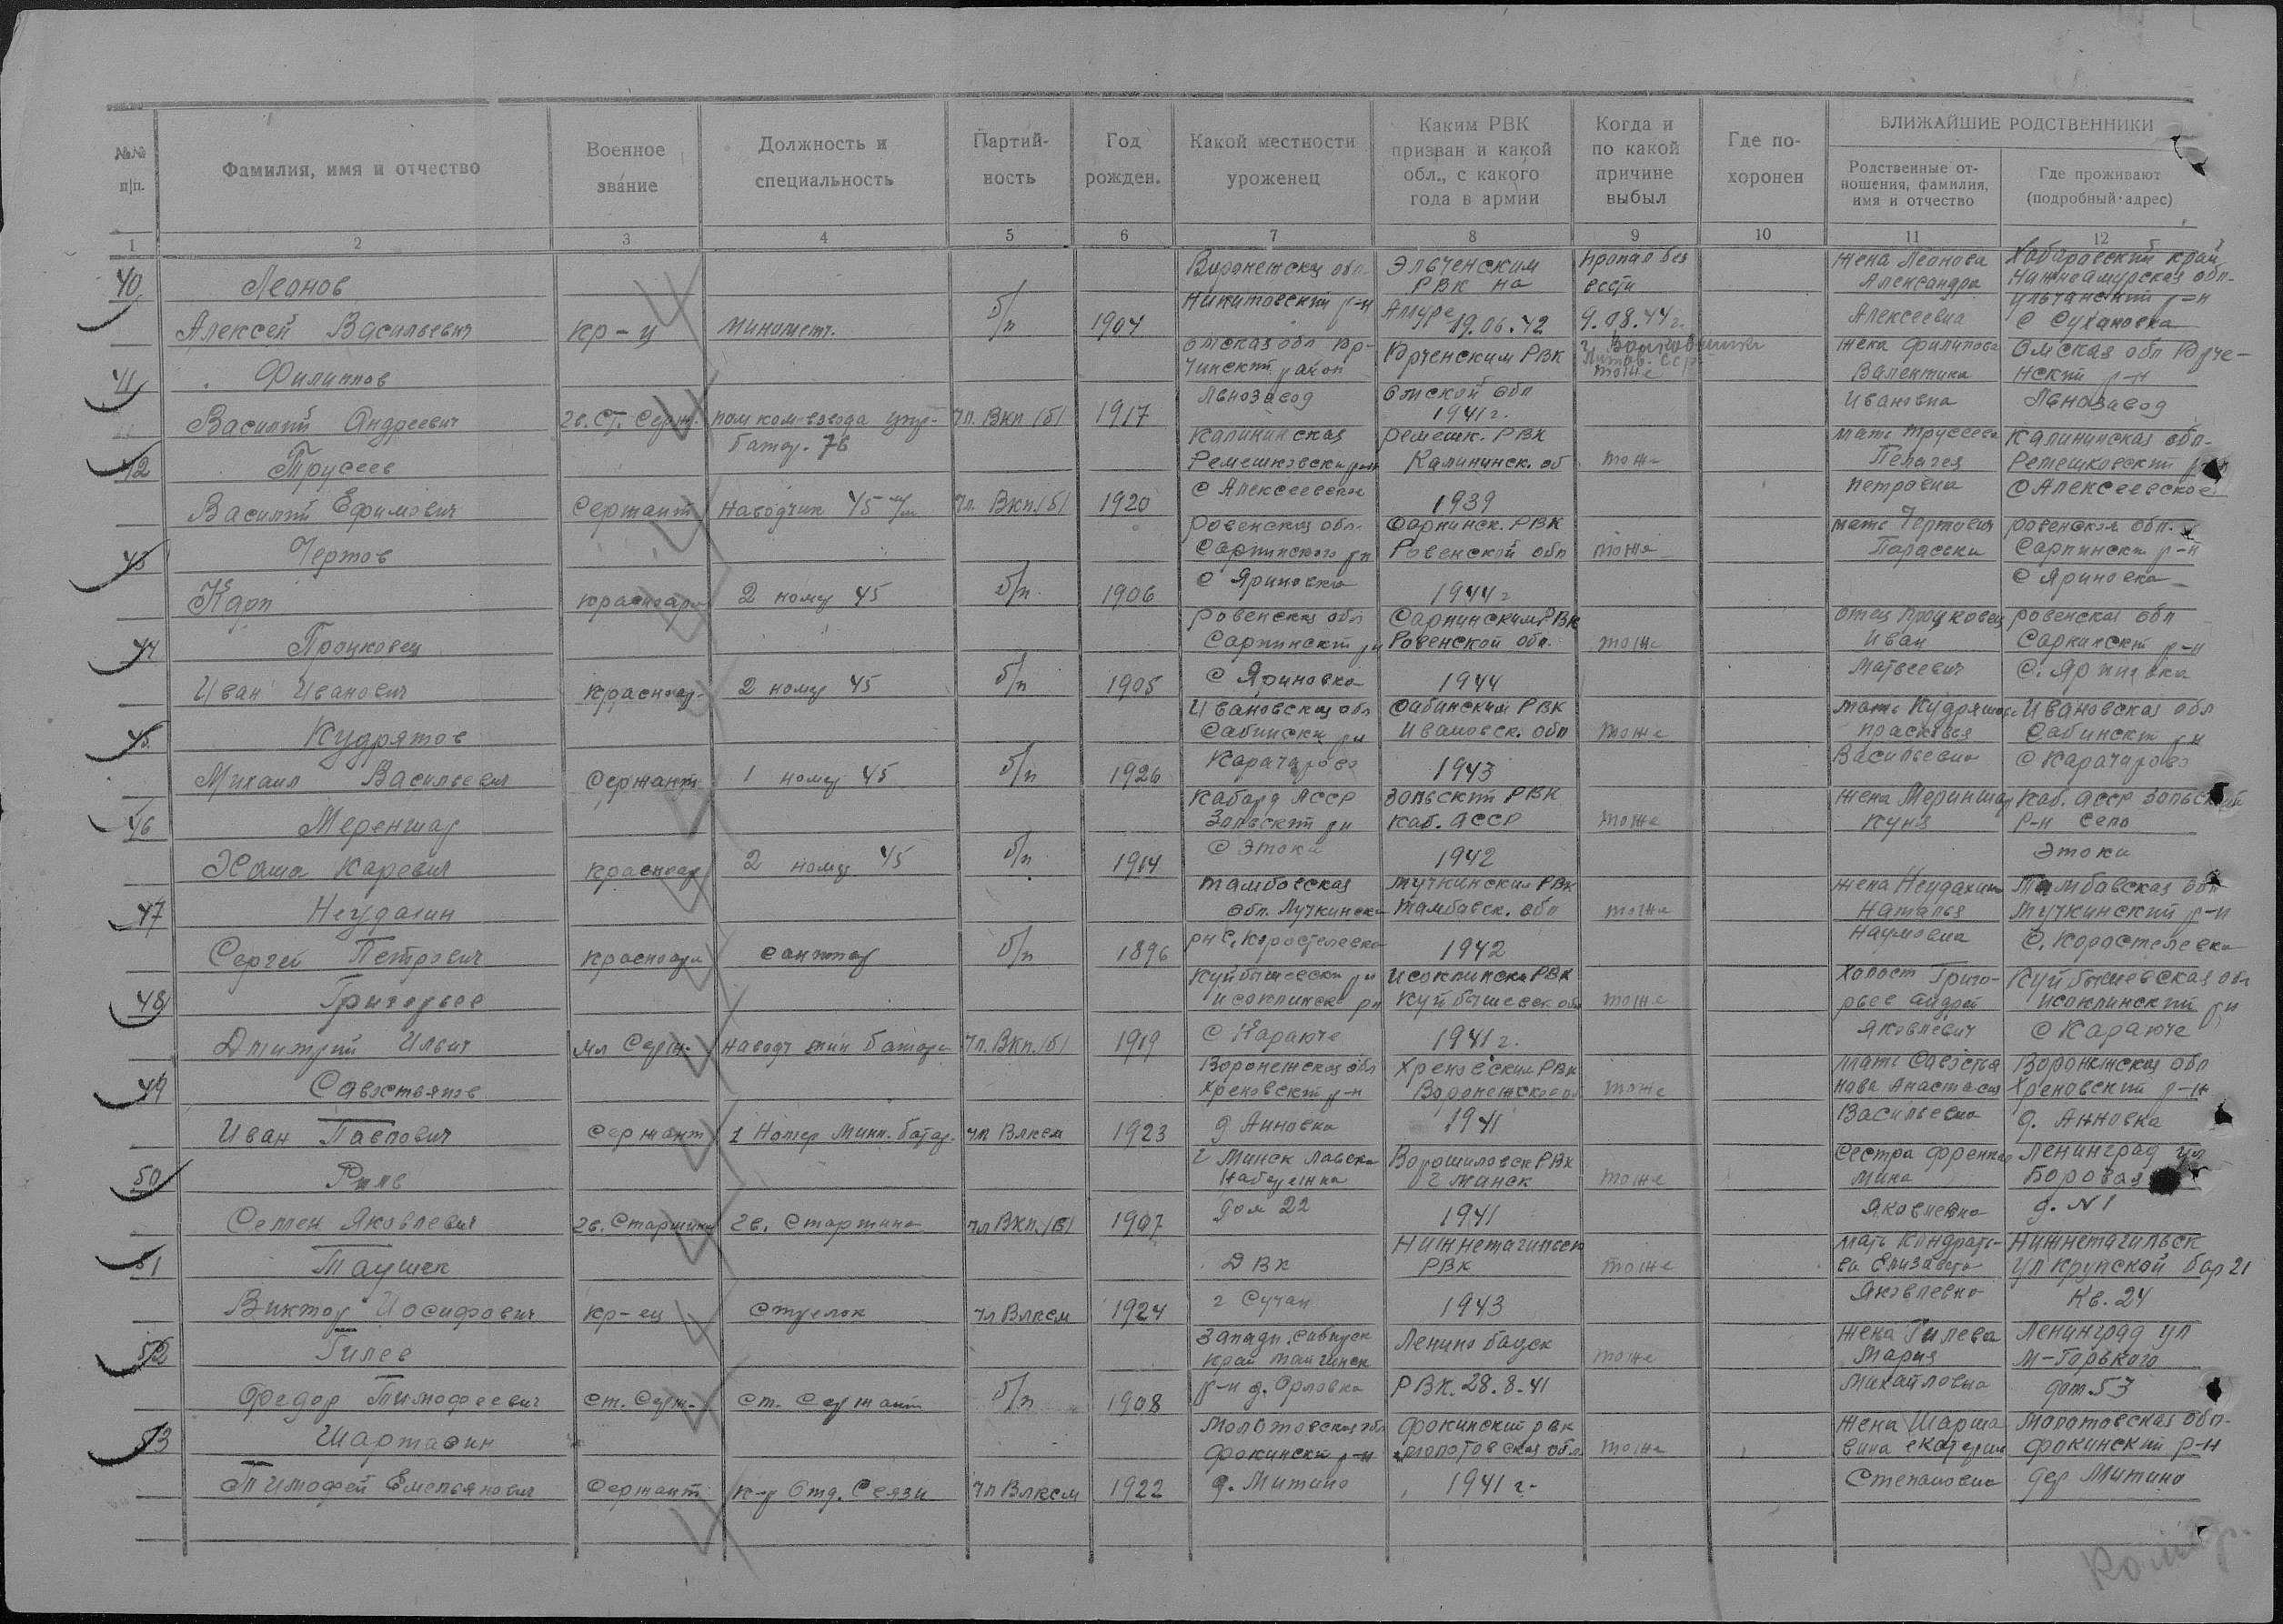 №№ п|п.
Фамилия, имя и отчество
Военное звание
Должность и специальность
Партий-
ность
Год рожден.
Какой местности уроженец
Каким РВК
призван и какой
обл., с какого
года в армии
Когда и
по какой
причине
выбыл
Где по-
хоронен
БЛИЖАЙШИЕ РОДСТВЕННИКИ
Родственные от-
ношения, фамилия,
имя и отчество
Где проживают
(подробный адрес)
1 2 3 4 5 6 7 8 9 10 11 12
40 Леонов
Алексей Васильевич
кр-ц
минометч.
б/п
1904
Воронежская обл.
Никитовский р-н
РВК на
Амуре 19.06.42
пропал без
вести
9.08.44 г.
жена Леонова
Александра
Алексеевна
Хабаровский край
Нижнеамурская обл.
Ульчанский р-н
с Сухановка
41 Филиппов
Василий Андреевич
гв. Ст. Серж.
пом ком-взвода упр.
батар. 76
чл. Вкп /б/
1917
омская обл
район
Льнозавод
РВК
омской обл
1941 г.
тоже
жена Филипова
Валентина
Ивановна
Омская обл
нский р-н
Льнозавод
42 Трусеев
Василий Ефимович
Сержант
Наводчик 45 м/м
чл. Вкп /б/
1920
Калининская
Ремешковский р-н
с Алексеевское
ремешк. РВК
Калининск. об
1939
тоже
мать Трусеева
Пелагея
Петровна
Калининская обл.
Ремешковский р-н
с Алексеевское
43 Чертов
Карп
красноар
2 номер 45
б/п
1906
ровенская обл.
Сарнинского рн
с Яриновка
Сарнинск. РВК
Ровенской обл
1944 г
тоже
мать
Параска
ровенская обл.
Сарнинский р-н
с Яриновка
44 Процковец
Иван Иванович
красноар.
2 номер 45
б/п
1905
ровенская обл
Сарнинский рн
с Яриновка
Сарнинским РВК
Ровенской обл.
1944
тоже
отец Процковец
Иван
Матвеевич
ровенская обл
Сарнинский р-н
с. Яриновка
45 Кудрятов
Михаил Васильевич
Сержант
1 номер 45
б/п
1926
Ивановская обл
Савинский рн
Карачарово
Савинский РВК
Ивановск. обл
1943
тоже
мать
прасковья
Васильевна
Ивановская обл
Савинский рн
с Карачарово
46
красноар
2 номер 45
б/п
1914
Кабард АССР
Зольский рн
с Этока
зольский РВК
каб. АССР
1942
тоже
жена
Куня
каб. АССР Зольский
р-н село
Этока
47 Неудахин
Сергей Петрович
красноар
санитар
б/п
1896
тамбовская
обл.
рн с. Коростелевка
РВК
Тамбовск. обл
1942
тоже
жена Неудахина
Наталья
Наумовна
Тамбовская обл
р-н
с. Коростелевка
48 Григорьев
Дмитрий Ильич
мл Серж.
наводч мин батареи
чл. Вкп /б/
1919
исоклинск рн
с Караюче
исоклинский РВК
Куйбышевск обл
1941 г.
тоже
холост Григо-
рьев Андрей
Яковлевич
Куйбышевская обл
исоклинский рн
с Караюче
49 Савостьянов
Иван Павлович
Сержант
1 номер Мин. батар.
чл Влксм
1923
Воронежская обл
Хреновский р-н
д Анновка
Хреновским РВК
1941
тоже
мать Савостья
нова Анастасия
Васильевна
Воронежская обл
Хреновский р-н
д. Анновка
50
Семен Яковлевич
гв. Старшина
гв. Старшина
чл Вкп /б/
1907
г Минск
набережна
дом 22
Ворошиловск РВК
г Минск
1941
тоже
сестра
Мина
Яковлевна
Ленинград ул
Боровая
д. №1
51 Таушек
Виктор Иосифович
кр-ец
стрелок
чл Влксм
1924
ДВК
г Сучан
Нижнетагильск
РВК
1943
тоже
мать Кондрать-
ва Елизавета
Яковлевна
Нижнетагильск
ул Крупской бар 21
Кв. 24
52 Гилев
Федор Тимофеевич
ст. Серж.
ст. Сержант
б/п
1908
Западн. Сибирск
край
р-н д. Орловка
РВК. 28.8.41
тоже
жена Гилева
Мария
Михайловна
Ленинград ул
М-Горького
дом. 53
53
Тимофей Емельянович
Сержант
к-р отд. Связи
чл Влксм
1922
молотовская обл
Фокинский р-н
д. Митино
Фокинский рвк
молотовская обл.
1941 г.
тоже
жена
Степановна
молотовская обл.
Фокинский р-н
дер Митино